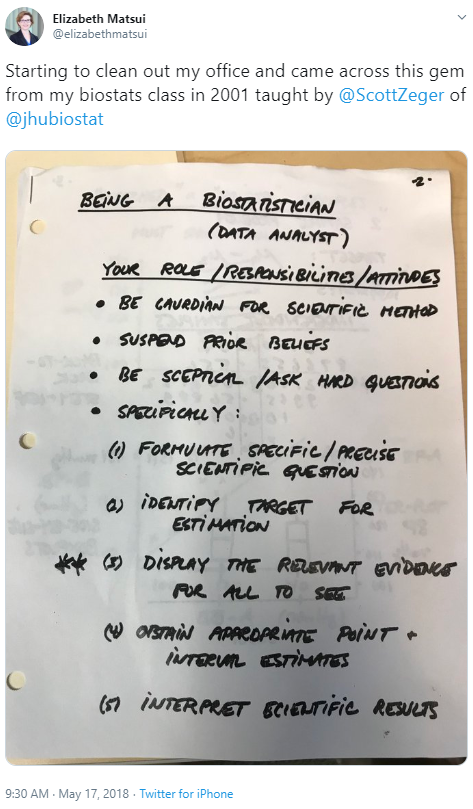 Elizabeth Matsui
@elizabethmatsui
Starting to clean out my office and came across this gem
from my biostats class in 2001 taught by @ScottZeger of
@jhubiostat
-2-
BEING A BIOSTATISTICIAN
(DATA ANALYST)
YOUR ROLE / RESPONSIBILITIES / ATTITUDES
• BE GAURDIAN FOR SCIENTIFIC METHOD
• SUSPEND PRIOR BELIEFS
• BE SCEPTICAL / ASK HARD QUESTIONS
• SPECIFICALLY :
(1) FORMULATE SPECIFIC / PRECISE
SCIENTIFIC QUESTION
2) IDENTIFY TARGET FOR
ESTIMATION
** (3) DISPLAY THE RELEVANT EVIDENCE
FOR ALL TO SEE
(4) OBTAIN APPROPRIATE POINT +
INTERVAL ESTIMATES
(5) INTERPRET SCIENTIFIC RESULTS
9:30 AM · May 17, 2018 · Twitter for iPhone